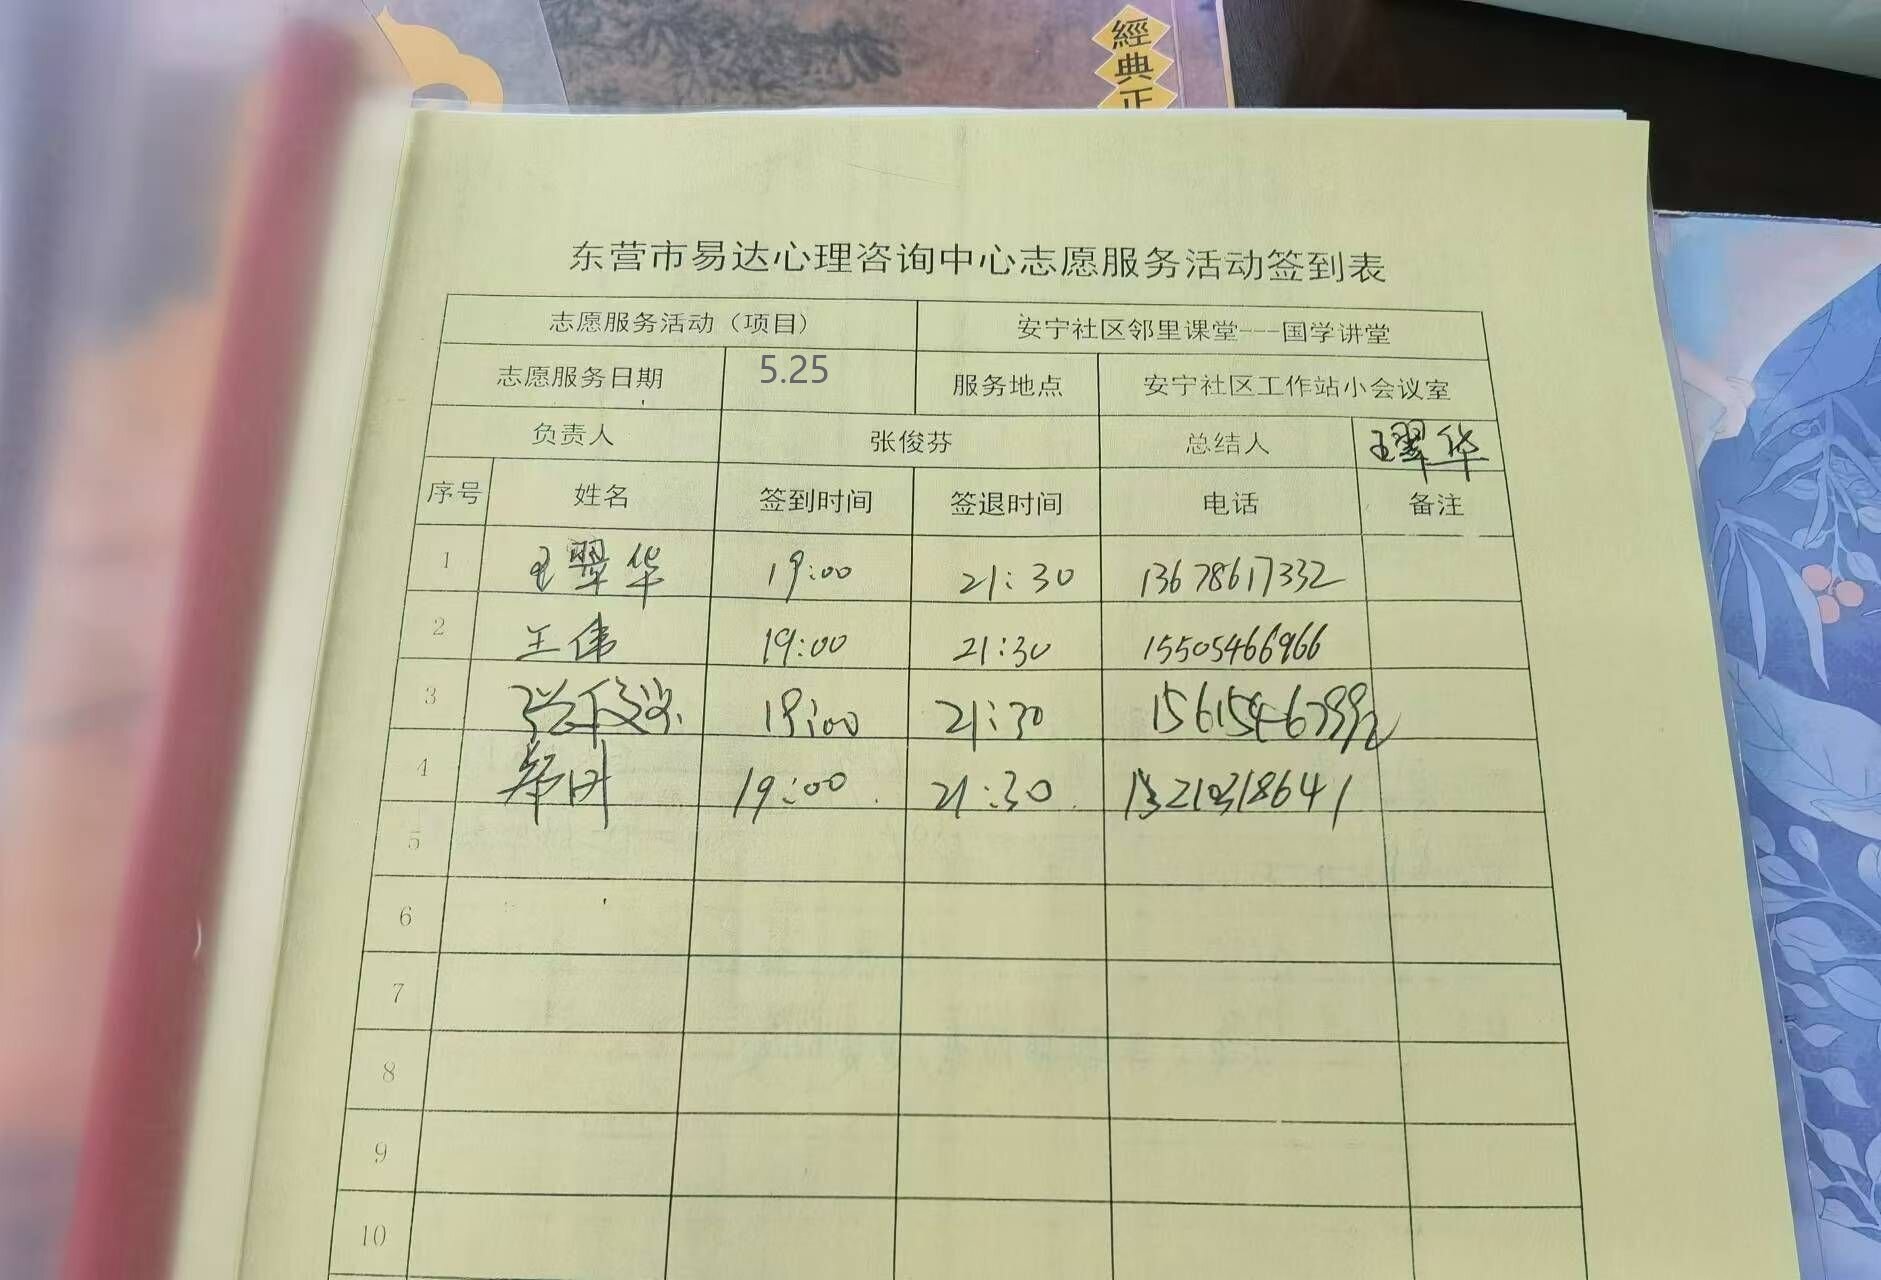 經典正
东营市易达心理咨询中心志愿服务活动签到表
志愿服务活动（项目） 安宁社区邻里课堂---国学讲堂
志愿服务日期 5.25 服务地点 安宁社区工作站小会议室
负责人 张俊芬 总结人 王翠华
序号 姓名 签到时间 签退时间 电话 备注
1 王翠华 19:00 21:30 13678617332
2 王伟 19:00 21:30 15505466966
3 19:00 21:30
4 19:00 21:30
5
6
7
8
9
10